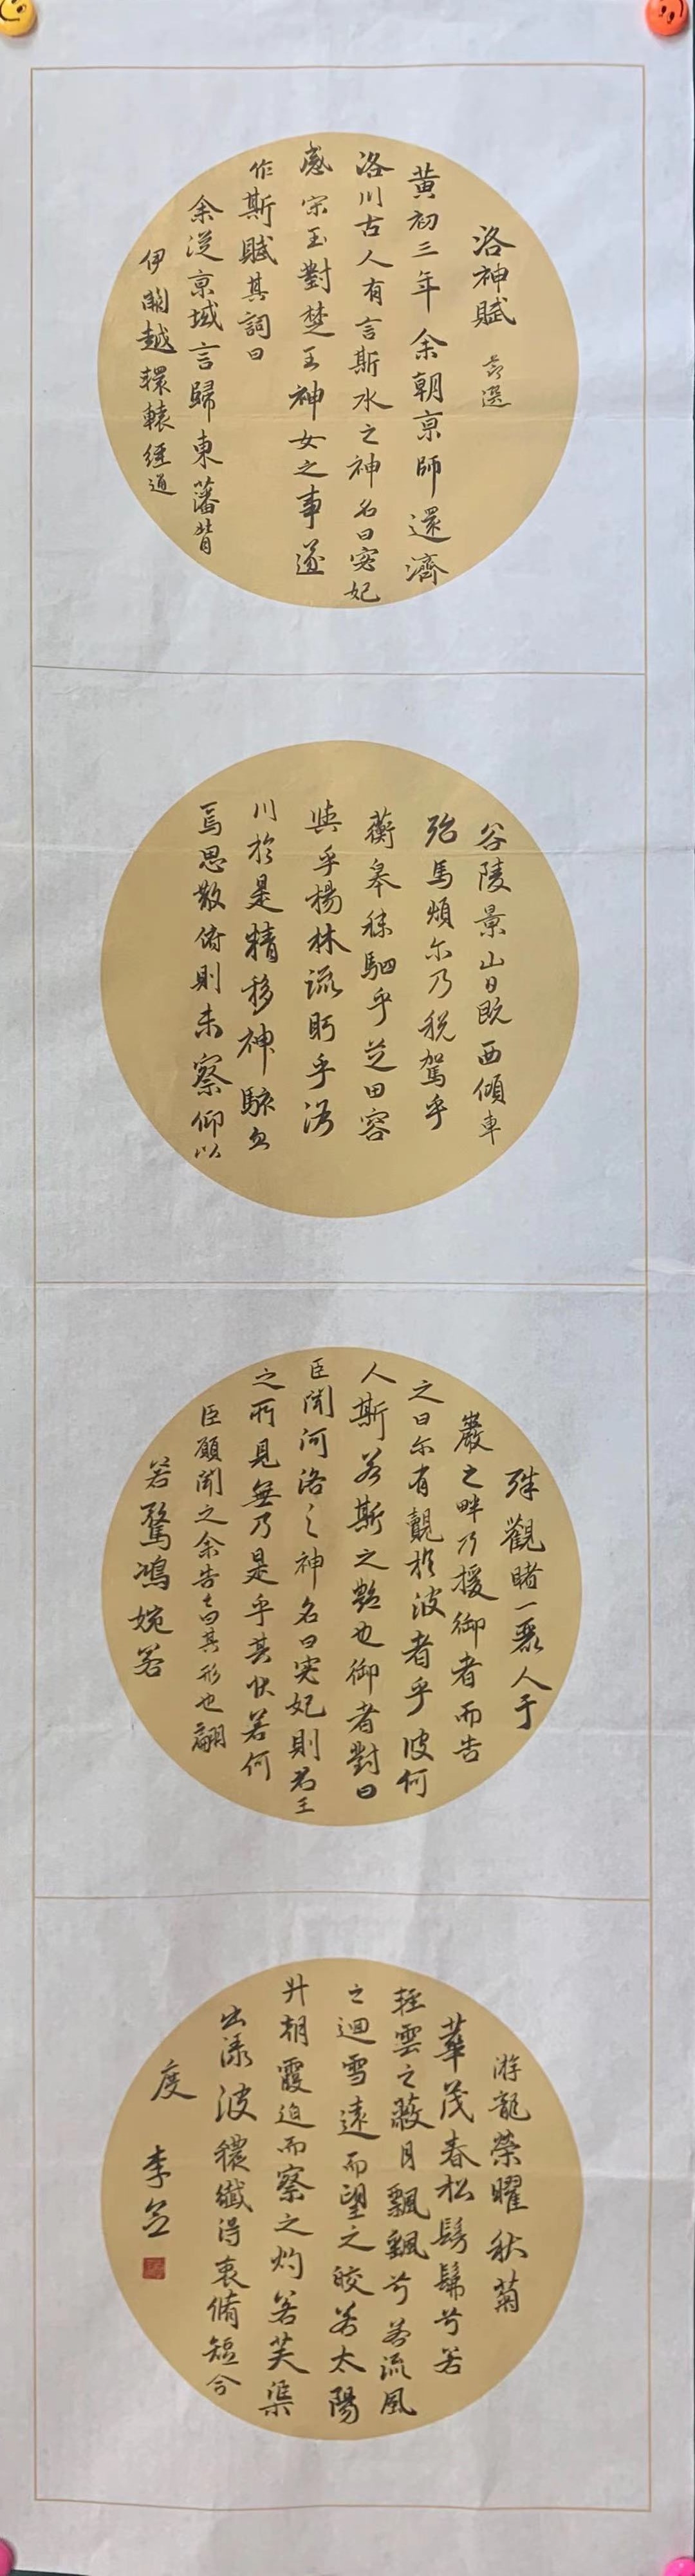 洛神賦 節選
黃初三年余朝京師還濟
洛川古人有言斯水之神名曰宓妃
感宋玉對楚王神女之事遂
作斯賦其詞曰
余從京域言歸東藩背
伊闕越轘轅經通
谷陵景山日既西傾車
殆馬煩尔乃稅駕乎
蘅皋秣駟乎芝田容
與乎楊林流眄乎洛
川於是精移神駭忽
焉思散俯則未察仰以
殊觀睹一麗人于
巖之畔乃援御者而告
之曰尔有覿於波者乎彼何
人斯若斯之艷也御者對曰
臣聞河洛之神名曰宓妃則君王
之所見無乃是乎其狀若何
臣願聞之余告之曰其形也翩
若驚鴻婉若
游龍榮曜秋菊
華茂春松髣髴兮若
輕雲之蔽月飄飄兮若流風
之迴雪遠而望之皎若太陽
升朝霞迫而察之灼若芙渠
出渌波穠纖得衷脩短合
度 李